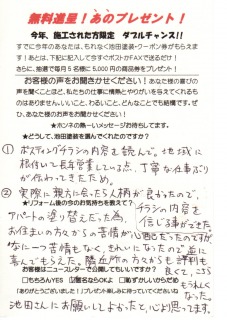 無料進呈！あのプレゼント！
今年、施工された方限定　ダブルチャンス!!
すでに今年のあなたは、もれなく池田塗装クーポン券がもらえま
す！あとは、下記に記入して今すぐポストかFAXで送るだけ！
さらに、抽選で毎月5名様に5,000円分の商品券をプレゼント！
お客様の声をお聞きかせください！あなた様の喜びの
声を聞くことほど、私たちの仕事に情熱とやりがいを与えてくれるも
のはありません。いいこと、わるいこと、どんなことでも結構です。ぜ
ひ、あなたの声をお聞きかせください。
★ホンネの熱～いメッセージお待ちしてます。
★どうして、池田塗装を選んでくれたのですか？
① ポスティングチラシの内容を読んで。地域に
根付いて長年営業している点、丁寧な仕事ぶり
が伺わてきたため。
② 実際に親方に会ったら人柄が良かったので、
チラシの内容を
信じる事ができた
★リフォーム後の今のお気持ちを教えて？
アパートの塗り替えだった為、
お住まいの方々からの苦情が心配だったのですが
特に一つ苦情もなく、きれいになったので皆に
喜んでもらえた。隣近所の方からも評判も
良くて、こちらも
うれしくなった。
お客様はニュースレターで公開してもいいですか？
□もちろんYES ☑匿名ならOKよ □恥ずかしいからだめ
★ありがとうございました！プレゼント楽しみに待っていてくださいね
池田さんにお願いしてよかったと、心より思ってます。